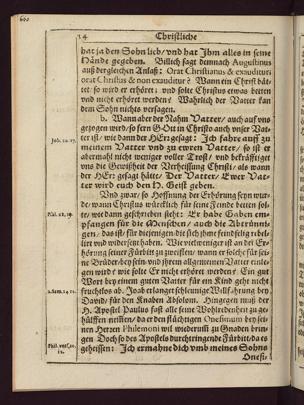 14 Christliche
hat ja den Sohn lieb/ vnd hat Jhm alles in seine
Hände gegeben. Billich sagt demnach Augustinus
auß dergleichen Anlaß: Orat Christianus & exauditur:
orat Christus & non exauditur? Wann ein Christ bät-
tet so wird er erhöret: vnd solte Christus etwas betten
vnd nicht erhöret werden? Wahrlich der Vatter kan
dem Sohn nichts versagen.
b. Wann aber der Nahm Vatter/ auch auf vns
gezogen wird/ so fern GOtt in Christo auch vnser Vat-
ter ist/ wie dann der HErr gesagt: Jch fahre auff zu
Joh. 20. 17.
meinem Vatter vnd zu ewren Vatter/ so ist er
abermahl nicht weniger voller Trost/ vnd bekräfftiget
vns die Gewißheit der Verheissung Christi/ als wann
der HErr gesagt hätte: Der Vatter/ Ewer Vat-
ter wird euch den H. Geist geben.
Vnd zwar/ so Hoffnung der Erhörung seyn wur-
de/ wann Christus würcklich für seine Feinde betten sol-
te/ wie dann geschrieben steht: Er habe Gaben em-
pfangen für die Menschen/ auch die Abtrünni-
gen/ das ist/ für diejenigen die sich jhme feindselig erbei-
Psal. 68. 19.
und widersetzt haben. Wie viel weniger ist an der Er-
hörung seiner Fürbitt zu zweiflen/ wann er solche für sei-
ne Brüder/ bey sein vnd jhrem allgemeinen Vatter einle-
gen wird? wie solte Er nicht erhöret werden? Ein gut
Wort bey einem guten Vatter für ein Kind geht nicht
fruchtlos ab. Joab erlanget sehleunige Willfahrung bey
2. Sam. 14. 21.
David/ für den Knaben Absolom. Hingegen muß der
H. Apostel Paulus fast alle seine Wohlredenheit zu ge-
hülffen nemen/ da er den flüchtigen Onesimum bey sei-
nem Herren Philemoni wil wiederum zu Gnaden brin-
gen. Doch so des Apostels durchtringende Fürbitt da es
geheissen: Jch ermahne dich vmb meines Sohns
Onesi-